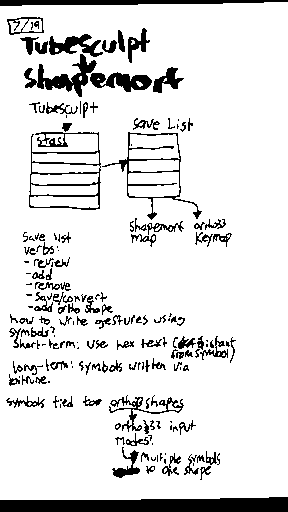 7/19
Tubesculpt
Shapemorf
Tubesculpt
Save List
stash
Shapemorf map
ortho33 Keymap
Save list
verbs:
- review
- add
- remove
- save/convert
- add ortho shape
how to write gestures using
symbols?
Short-term: use hex text (distant
from symbol)
long-term: symbols written via
bitrune.
symbols tied to ortho33 shapes
ortho33 input
modes?
Multiple symbols
to one shape